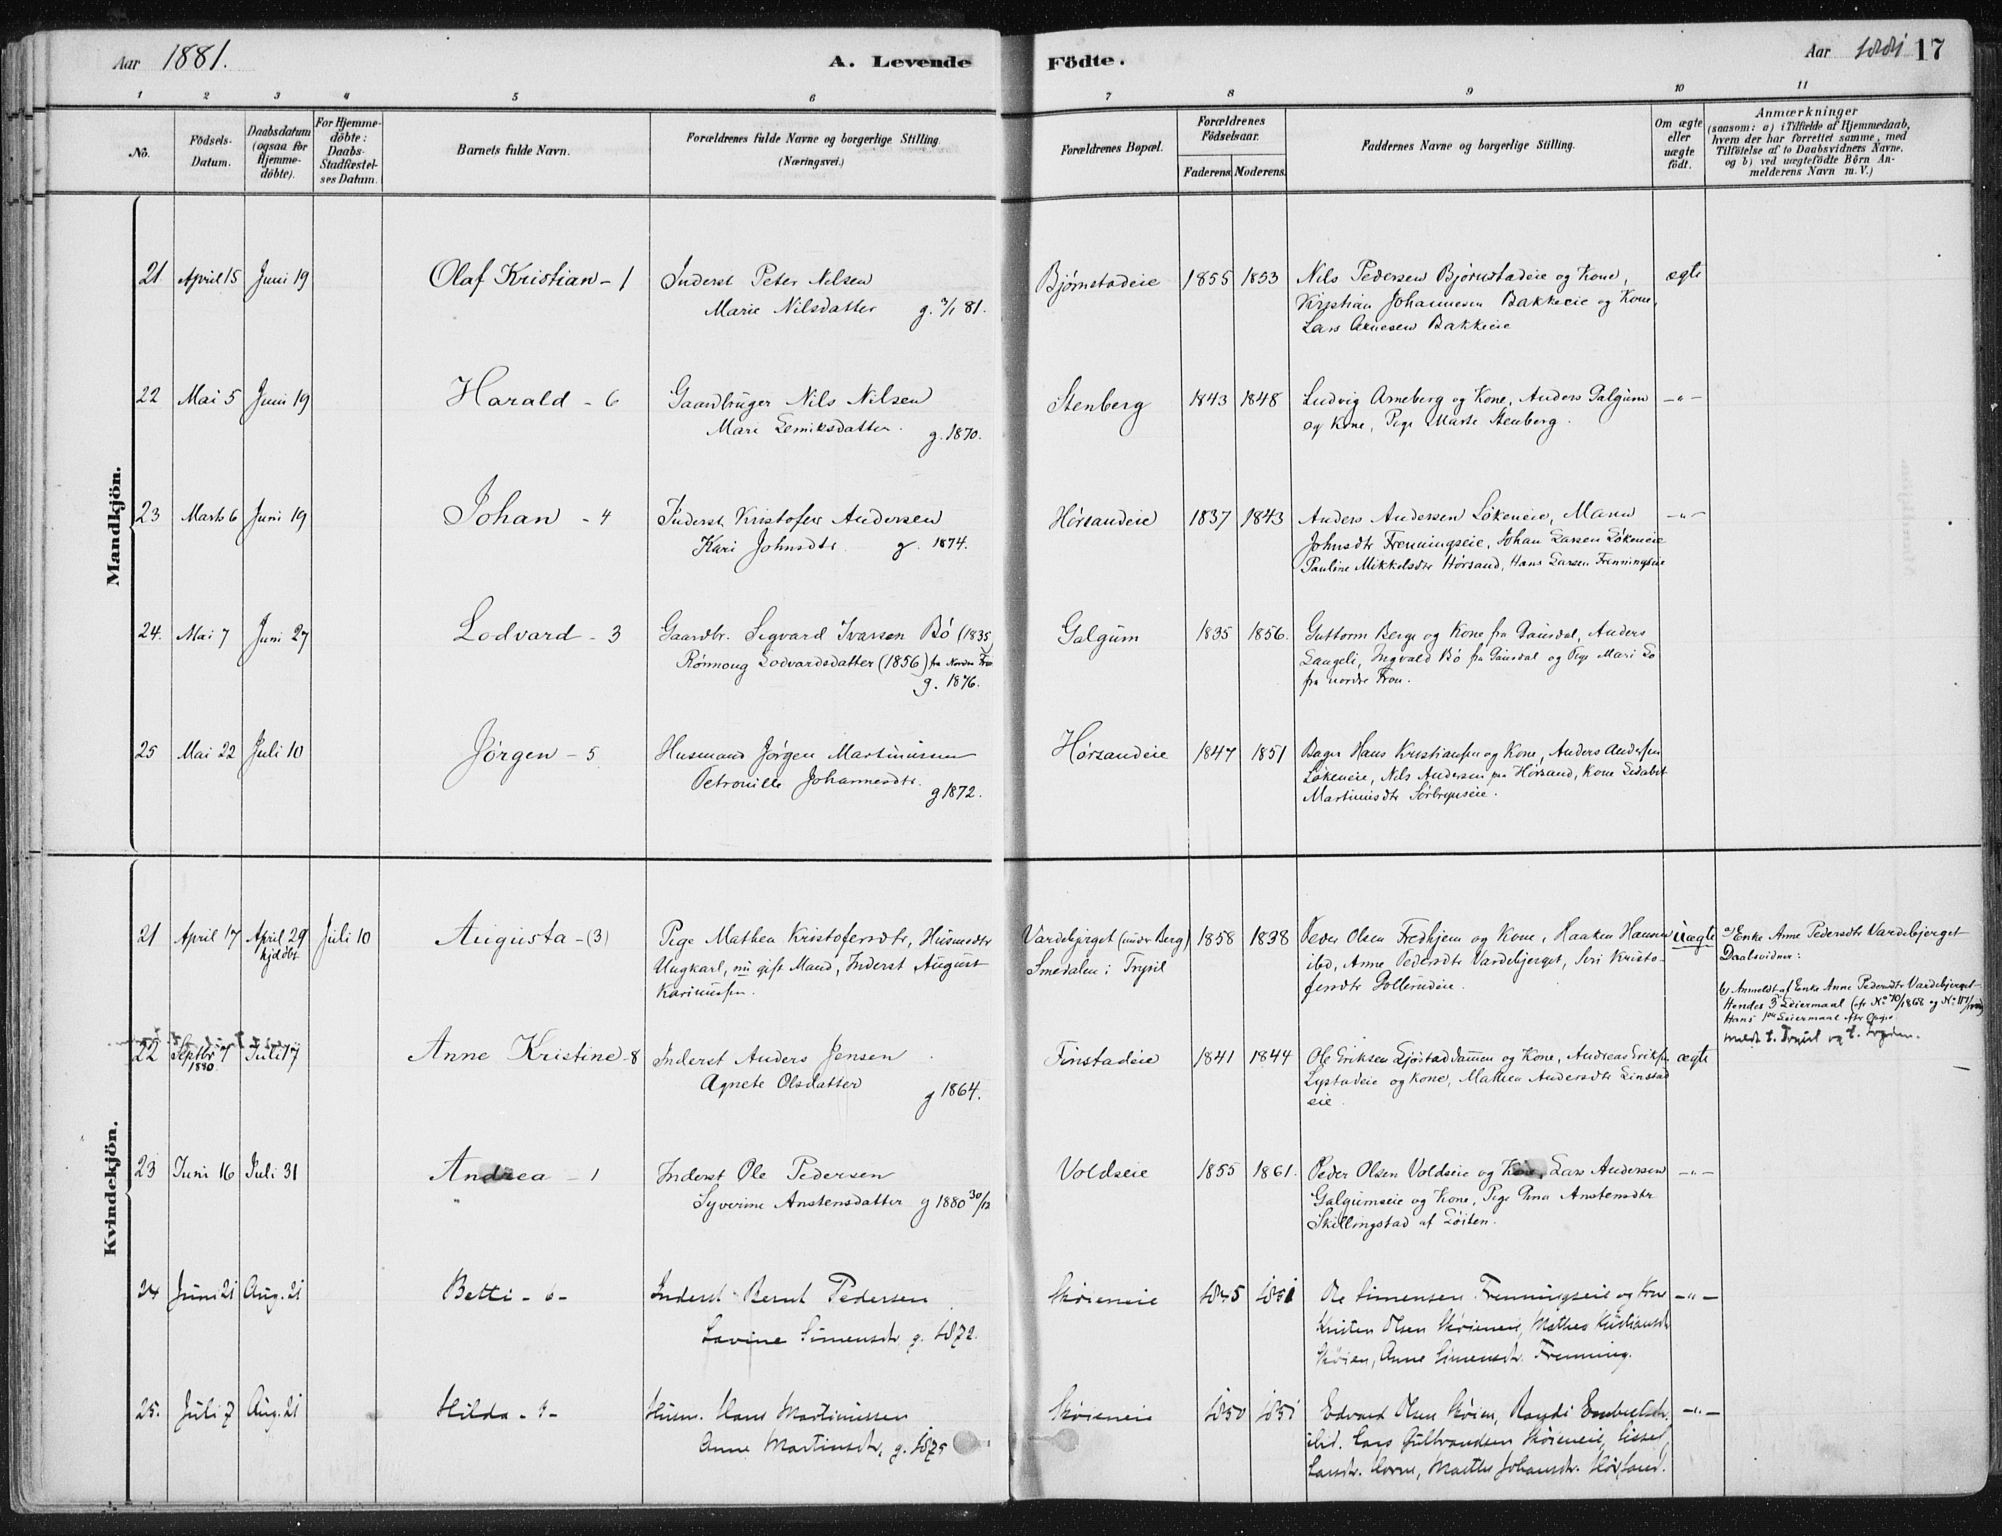 Aar 1881. A. Levende Födte. Aar 1881 17
1 2 3 4 5 6 7 8 9 10 11
No.
Födsels-Datum.
Daabsdatum (ogsaa for Hjemme-döbte).
For Hjemme-döbte: Daabs-Stadfæstel-ses Datum.
Barnets fulde Navn.
Forældrenes fulde Navne og borgerlige Stilling. (Næringsvei.)
Forældrenes Bopæl.
Forældrenes Födselsaar.
Faderens. Moderens.
Faddernes Navne og borgerlige Stilling.
Om ægte eller uægte födt.
Anmærkninger
(saasom: a) i Tilfælde af Hjemmedaab,
hvem der har forrettet samme, med
Tilföielse af to Daabsvidners Navne.
og b) ved uægtefödte Börn An-
melderens Navn m. V.)
Mandkjön.
21 April 15 Juni 19 Olaf Kristian - 1 Inderst Peter Nilsen Bjørnstadeie 1855 1853 Nils Pedersen Bjørnstadeie og Kone, ægte
Marie Nilsdatter g. 81. Kristian Johannesen Bakkeeie og Kone,
Lars Arnesen Bakkeie
22 Mai 5 Juni 19 Harald - 6 Gaardbruger Nils Nilsen Stenberg 1843 1848 Ludvig Arneberg og Kone, Anders Galgum -"-
Mari g. 1870. og Kone, Pige Marte Stenberg.
23 Marts 6 Juni 19 Johan - 4 Inderst Kristofer Andersen Hørsandeie 1837 1843 Anders Andersen Lökeneie, Maren -"-
Kari Johnsdtr. g. 1874. Johnsdtr Frenningseie, Johan Larsen Lökeneie
Pauline Mikkelsdtr Hörsand, Hans Larsen Frenningseie
24. Mai 7 Juni 27 Lodvard - 3 Gaardbr. Sigvard Ivarsen Bö (1835) Galgum 1835 1856. Guttorm Berge og Kone fra Gausdal, Anders
Rönnoug Lodvardsdatter (1856) fra Nordre Fron Langeli, Ingvald Bö fra Gausdal og Pige Mari Bö
g. 1876. fra nordre Fron.
25 Mai 22 Juli 10 Jørgen - 5 Husmand Jørgen Martinussen Hørsandeie 1847 1851 Bager Hans Kristiansen og Kone, Anders Andersen
Petronille Johannesdtr. g 1872. Lökeneie, Nils Andersen fra Hörsand, Kone
Martinusdtr
Kvindekjön.
21 April 17 April 29 hjdöbt Juli 10 Augusta - (3) Pige Mathea Kristofersdtr, Husmdtr Vardebjerget (under Berg) 1858 1838 Peder Olsen Fredhjem og Kone, Haaken Hansen Uægte a) Enke Anne Pedersdtr Vardebjerget
Ungkarl, nu gift Mand, Inderst August Smedalen i Trysil ibd, Anne Pedersdtr Vardebjerget, Siri Kristo- Daabsvidner:
Karinussen. fersdtr b) Anmeldt af Enke Anne Pedersdtr Vardebjerget
Hendes 3die Leiermaal (cfr No 70/1868 og No
Hans 1ste Leiermaal efter Opgive
22 Septbr 7 1880 Juli 17 Anne Kristine - 8 Inderst Anders Jensen Finstadeie 1841 1844 Ole Eriksen og Kone, Andreas Eriksen ægte
Agnete Olsdatter g 1864. Lystadeie og Kone, Mathea Andersdtr Finstad
eie.
23 Juni 16 Juli 31 Andrea - 1 Inderst Ole Pedersen Voldseie 1855 1861. Peder Olsen Voldseie og Kone, Lars Andersen -"-
Syverine Anstensdatter g 1880 30/12 Galgumseie og Kone, Pige Anstensdtr
Skillingstad af Löiten.
24 Juni 21 Aug. 21 Betti - 6 - Inderst Bernt Pedersen Skøieneie 1845 1851 Ole Simensen Frenningseie og Kone -"-
Lovine Simensdr. g. 1872. Kristen Olsen Skøieneie, Mathea Kristiansdr.
Skøien, Anne Simensdr. Frenning.
25. Juli 7 Aug. 21 Hilda - Husm. Hans Martinussen Skøieneie 1850 1851 Edvard Olsen Skøien, Randi Embretsdr. -"-
Anne Martinsdr. g. 1875 ibid. Lars Gulbrandsen Skøieneie, Sissel
Larsdr. Horne, Marthe Johansdr. Hørsand.